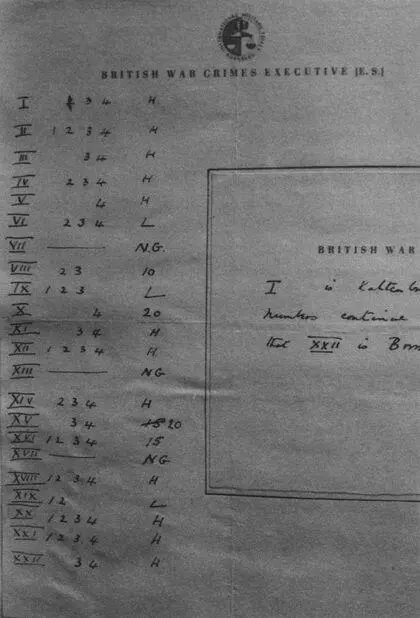 BRITISH WAR CRIMES EXECUTIVE [E.S.]
I 3 4 H
II 1 2 3 4 H
III 3 4 H
IV 2 3 4 H
V 4 H
VI 2 3 4 L
VII —— N.G.
VIII 2 3 10
IX 1 2 3 L
X 4 20
XI 3 4 H
XII 1 2 3 4 H
XIII —— NG
XIV 2 3 4 H
XV 3 4 15 20
XVI 1 2 3 4 15
XVII —— NG
XVIII 1 2 3 4 H
XIX 1 2 L
XX 1 2 3 4 H
XXI 1 2 3 4 H
XXII 3 4 H
BRITISH WAR
I is Kaltenbr
Numbers continue
that XXII is Borm